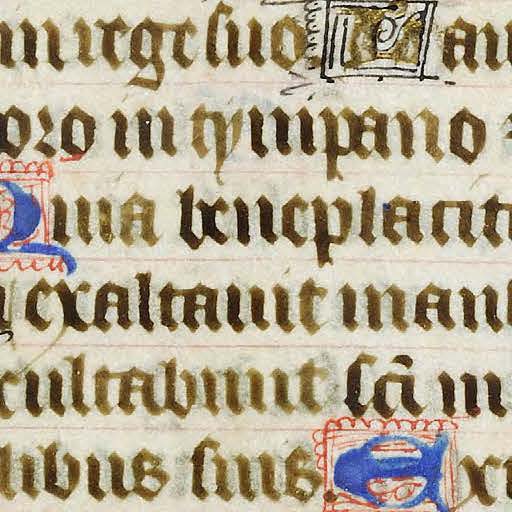 in rege suo Lau
oro in tympano
Quia beneplacit
exaltauit man
cultabunt scī in
libus suis. Ex